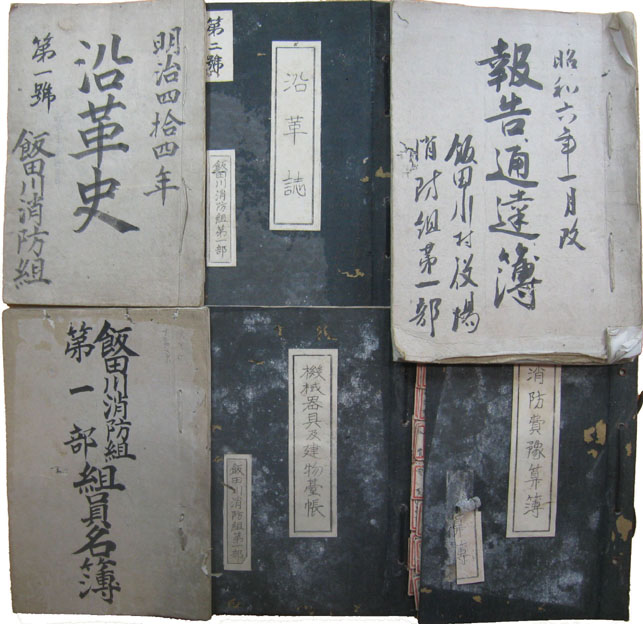 明治四拾四年
沿革史
第一號
飯田川消防組
第二號
沿革誌
飯田川消防組第一部
昭和六年一月改
報告通達簿
飯田川村役場
消防組第一部
飯田川消防組
第一部
組員名簿
機械器具及建物臺帳
飯田川消防組第一部
消防費豫算簿